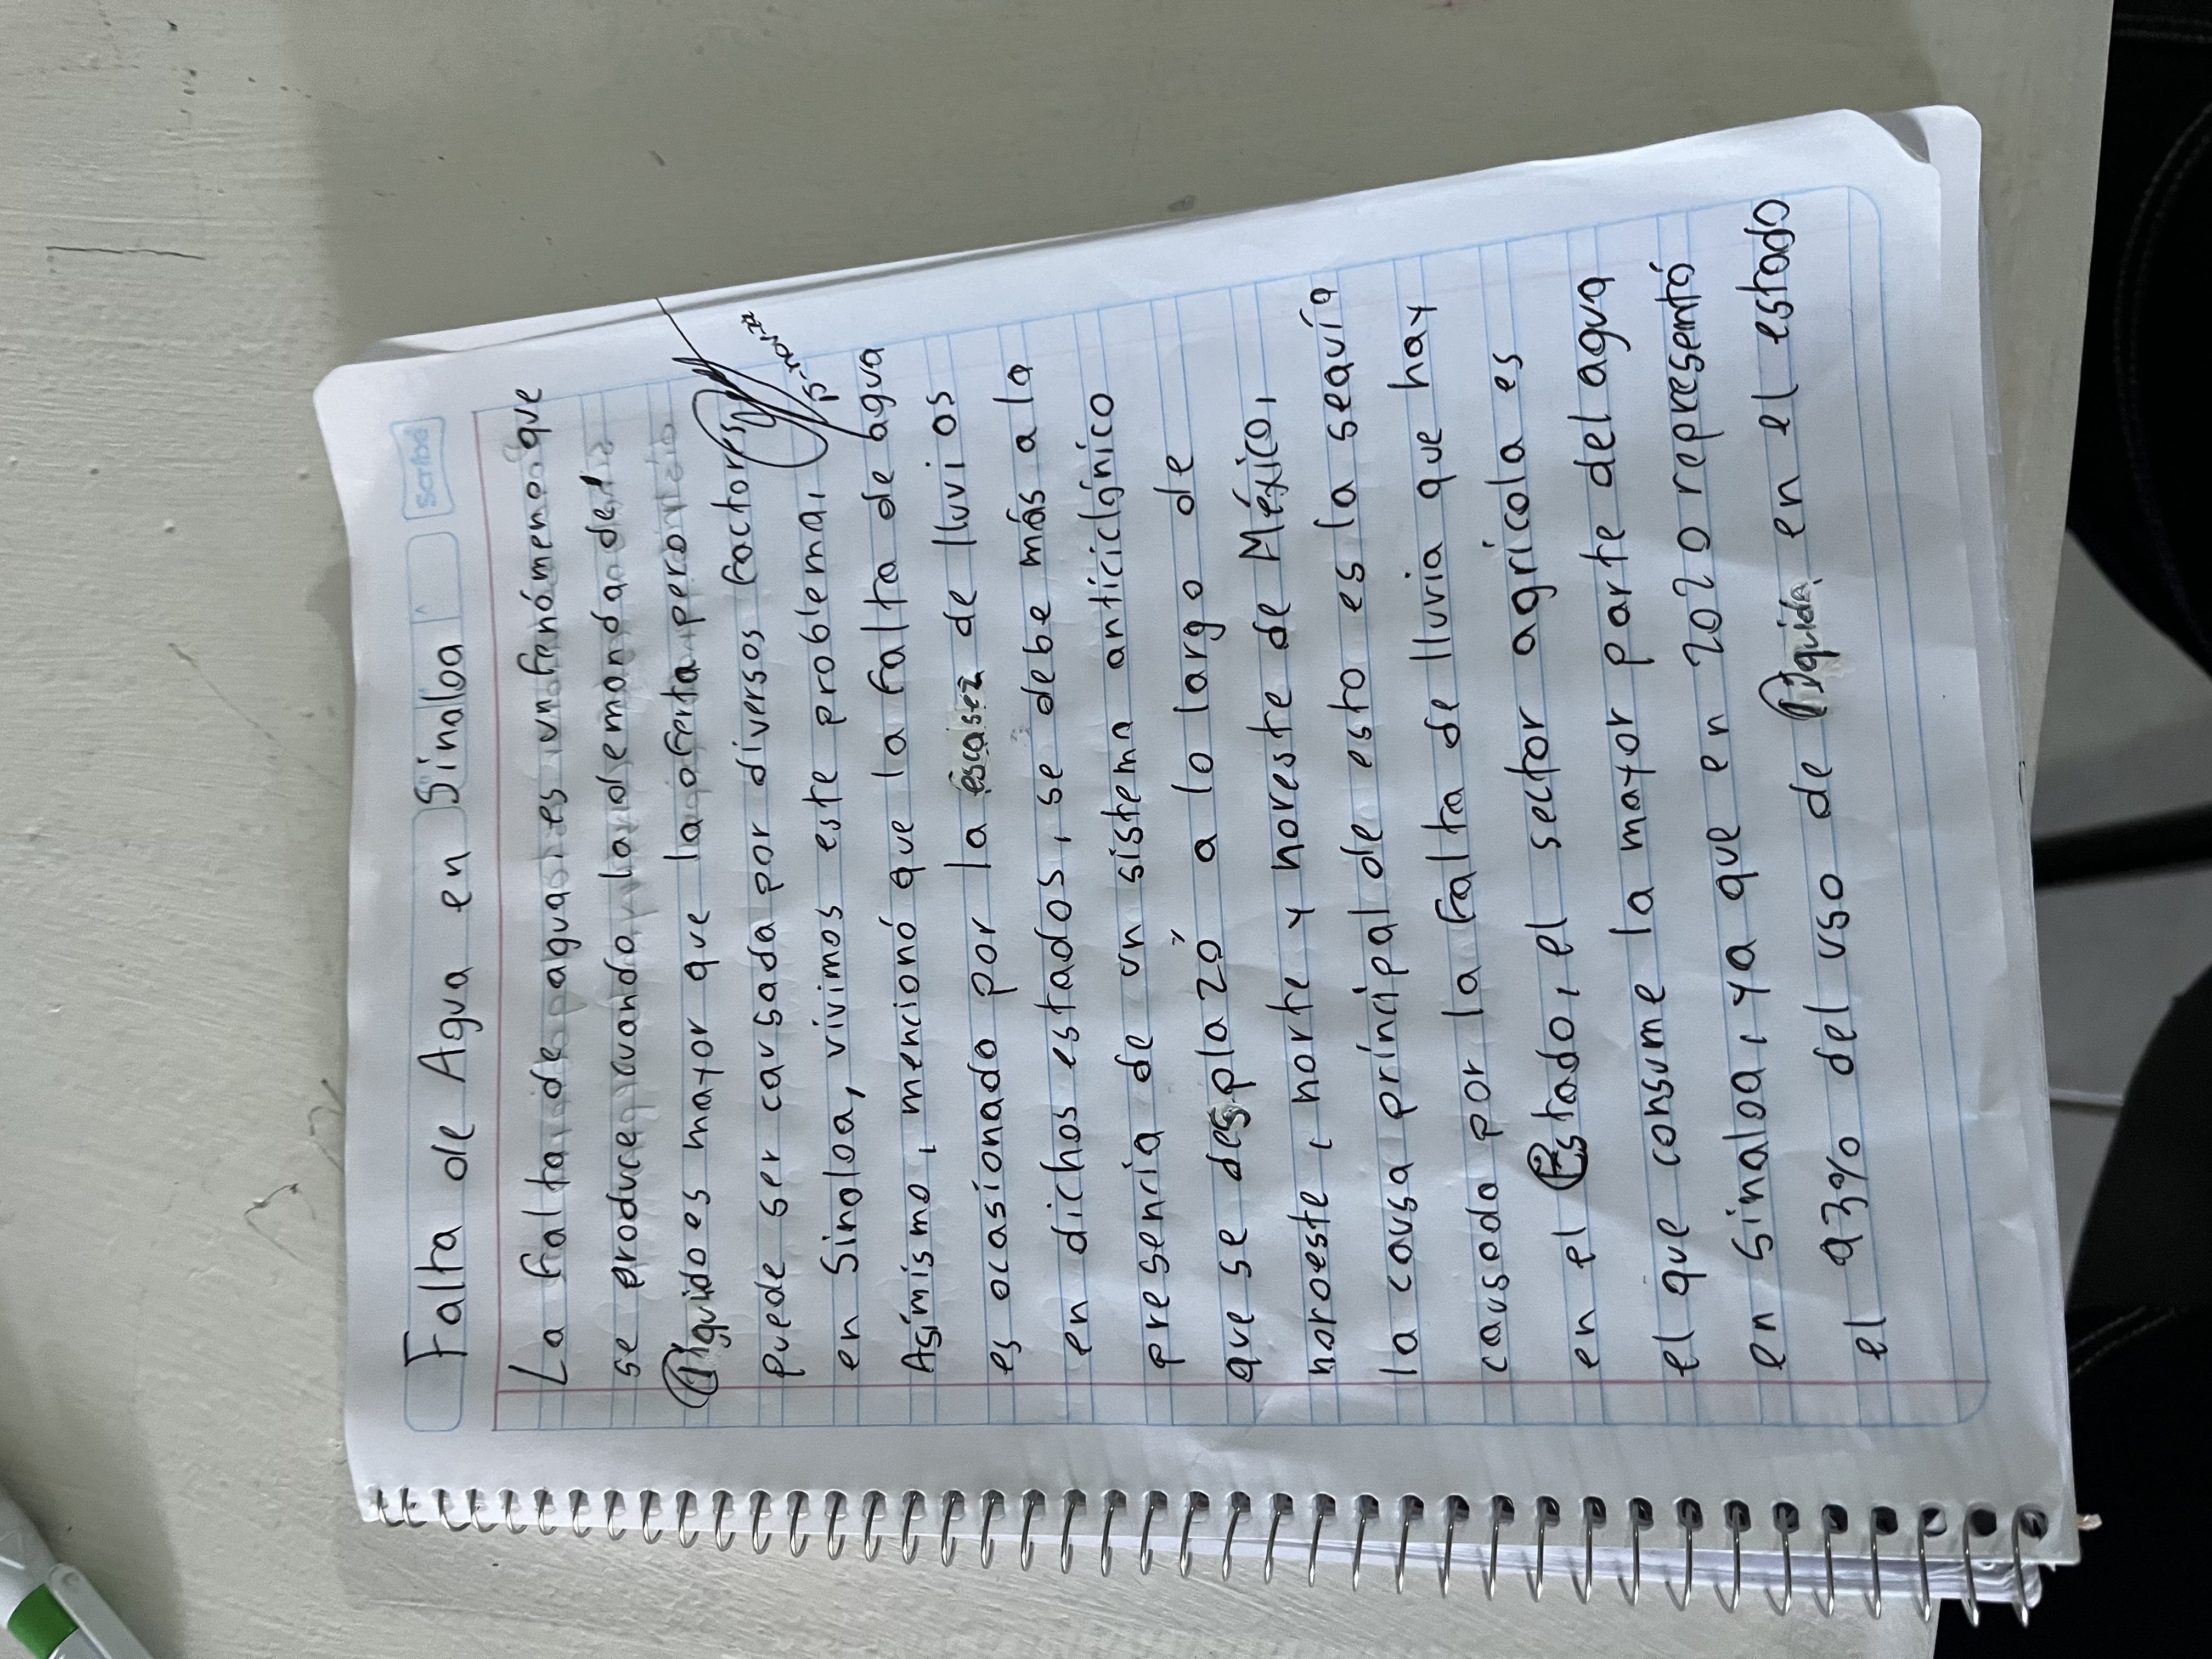 Falta de Agua en Sinaloa
Scribe
La falta de agua, es un fenómeno que
se produce cuando la demanda del
líquido es mayor que la oferta pero
puede ser causada por diversos factores
15-nov-22
en Sinaloa, vivimos este problema,
Asimismo, mencionó que la falta de agua
es ocasionado por la escasez de lluvias
en dichos estados, se debe más a la
presencia de un sistema anticiclónico
que se desplazó a lo largo de
noroeste, norte y noreste de México,
la causa principal de esto es la seauía
causado por la falta de lluvia que hay
en el Estado, el sector agrícola es
el que consume la mayor parte del agua
en Sinaloa, ya que en 2020 representó
el 93% del uso de líquido en el estado